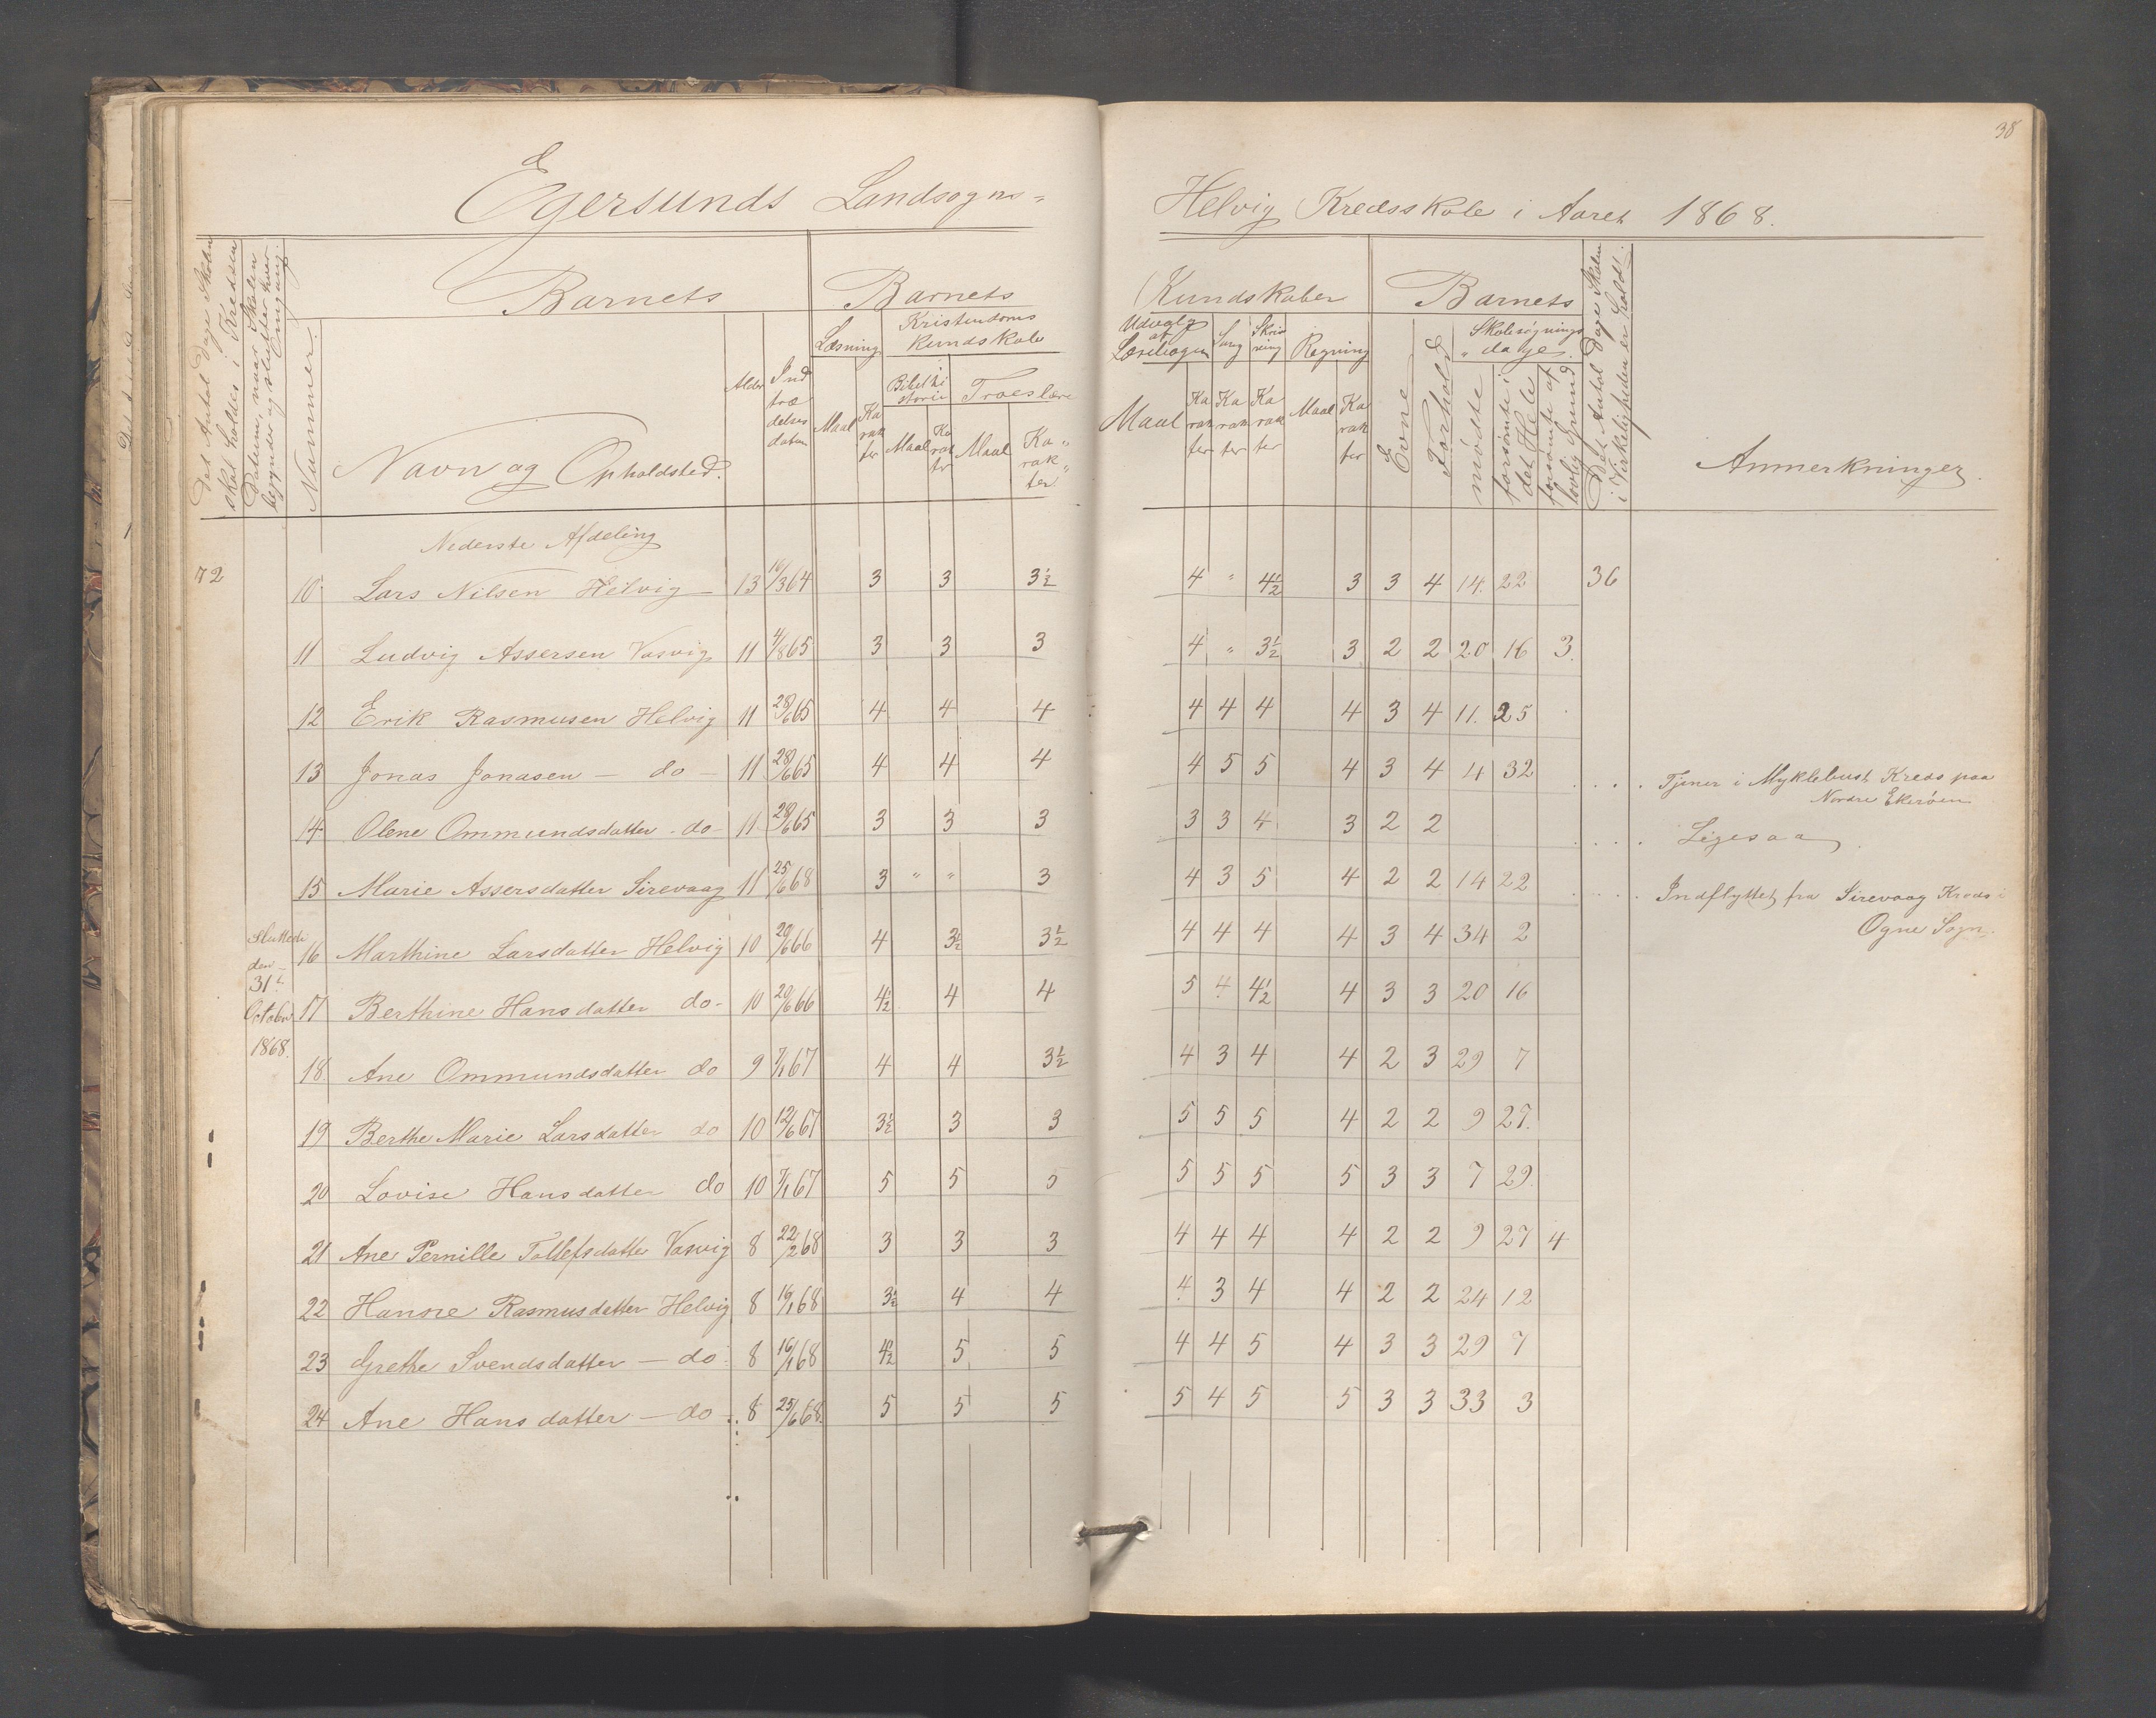 38
Egersunds Landsogns=
Helvig Kredsskole i Aaret 1868.
Det Antal Dage Skolen skal holdes i Kredsen
Datum, naar Skolen begynder og slutter hver Omgang.
Nummer.
Barnets
Navn og Opholdsted.
Alder
Ind træ delses datum
Barnets
Læsning
Maal
Ka rak ter
Kristendoms Kundskab
Bibelhi storie
Maal
Ka rak ter
Troeslære
Maal
Ka rak ter
Kundskaber
Udvalg af Læsebogen
Maal
Ka rak ter
Sang
Ka rak ter
Skriv ning
Ka rak ter
Regning
Maal
Ka rak ter
Barnets
Evne
Forhold
Skolesøgnings dage.
mødte
forsømte i det Hele
forsømte af lovlig Grund
Det Antal Dage Skolen i Virkeligheden er holdt.
Anmerkninger.
Nederste Afdeling
72 10 Lars Nilsen Helvig 13 16/3 64 3 3 3½ 4 " 4½ 3 3 4 14. 22 36
11 Ludvig Assersen Vasvig 11 4/8 65 3 3 3 4 " 3½ 3 2 2 20 16 3.
12 Erik Rasmusen Helvig 11 28/6 65 4 4 4 4 4 4 4 3 4 11. 25
13 Jonas Jonasen — do — 11 28/6 65 4 4 4 4 5 5 4 3 4 4 32
Tjener i Myklebust Kreds paa
Nordre Ekerøen
14 Olene Ommundsdatter do 11 28/6 65 3 3 3 3 3 4 3 2 2
Ligesaa
15 Marie Assersdatter Sirevaag 11 25/6 68 3 " " 3 4 3 5 4 2 2 14 22
Indflyttet fra Sirevaag Kreds i
Ogne Sogn.
Sluttede
den
31te
October
1868.
16 Marthine Larsdatter Helvig 10 20/6 66 4 3½ 3½ 4 4 4 4 3 4 34 2
17 Berthine Hansdatter do 10 20/6 66 4½ 4 4 5 4 4½ 4 3 3 20 16
18. Ane Ommundsdatter do 9 7/1 67 4 4 3½ 4 3 4 4 2 3 29 7
19 Berthe Marie Larsdatter do 10 12/6 67 3½ 3 3 5 5 5 4 2 2 9 27.
20 Lovise Hansdatter do 10 7/1 67 5 5 5 5 5 5 5 3 3 7 29.
21 Ane Pernille Tollefsdatter Vasvig 8 22/2 68 3 3 3 4 4 4 4 2 2 9 27 4
22 Hansine Rasmusdatter Helvig 8 16/1 68 3½ 4 4 4 3 4 4 2 2 24 12
23 Grethe Svendsdatter — do 8 16/1 68 4½ 5 5 4 4 5 4 3 3 29 7
24 Ane Hansdatter — do 8 25/6 68. 5 5 5 5 4 5 5 3 3 33 3